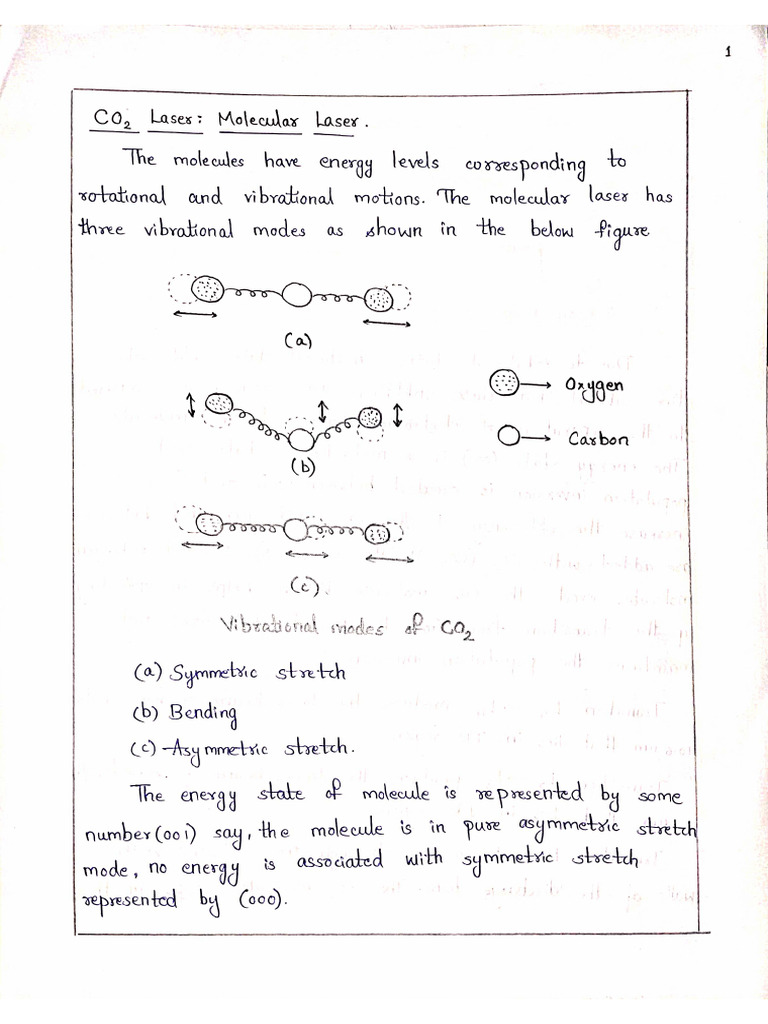 1
CO2 Laser: Molecular Laser.
The molecules have energy levels corresponding to
rotational and vibrational motions. The molecular laser has
three vibrational modes as shown in the below figure
(a)
Oxygen
Carbon
(b)
(c).
Vibrational modes of CO2
(a) Symmetric stretch
(b) Bending
(c) Asymmetric stretch.
The energy state of molecule is represented by some
number(001) say, the molecule is in pure asymmetric stretch
mode, no energy is associated with symmetric stretch
represented by (000).